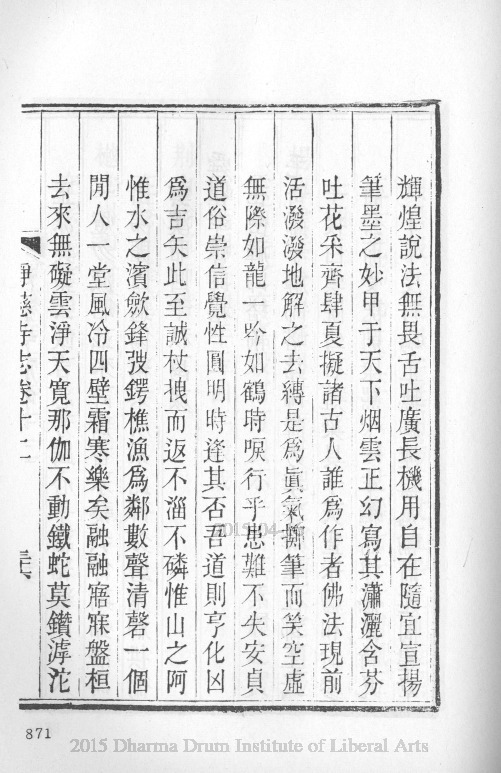 輝煌說法無畏舌吐廣長機用自在隨宜宣揚
筆墨之妙甲于天下烟雲正幻寫其瀟灑含芬
吐花釆齊肆夏擬諸古人誰爲作者佛法現前
活潑潑地解之去縛是爲眞氣擲筆而笑空虛
無際如龍一吟如鶴時唳行乎患難不失安貞
道俗崇信覺性圓明時逢其否吾道則亨化凶
爲吉矢此至誠杖拽而返不淄不磷惟山之阿
惟水之濱斂鋒弢鍔樵漁爲鄰數聲清磬一個
閒人一堂風冷四壁霜寒樂矣融融寤寐盤桓
去來無礙雲淨天寬那伽不動鐵蛇莫鑽滹沱
淨慈寺志卷十二
871
2015 Dharma Drum Institute of Liberal Arts